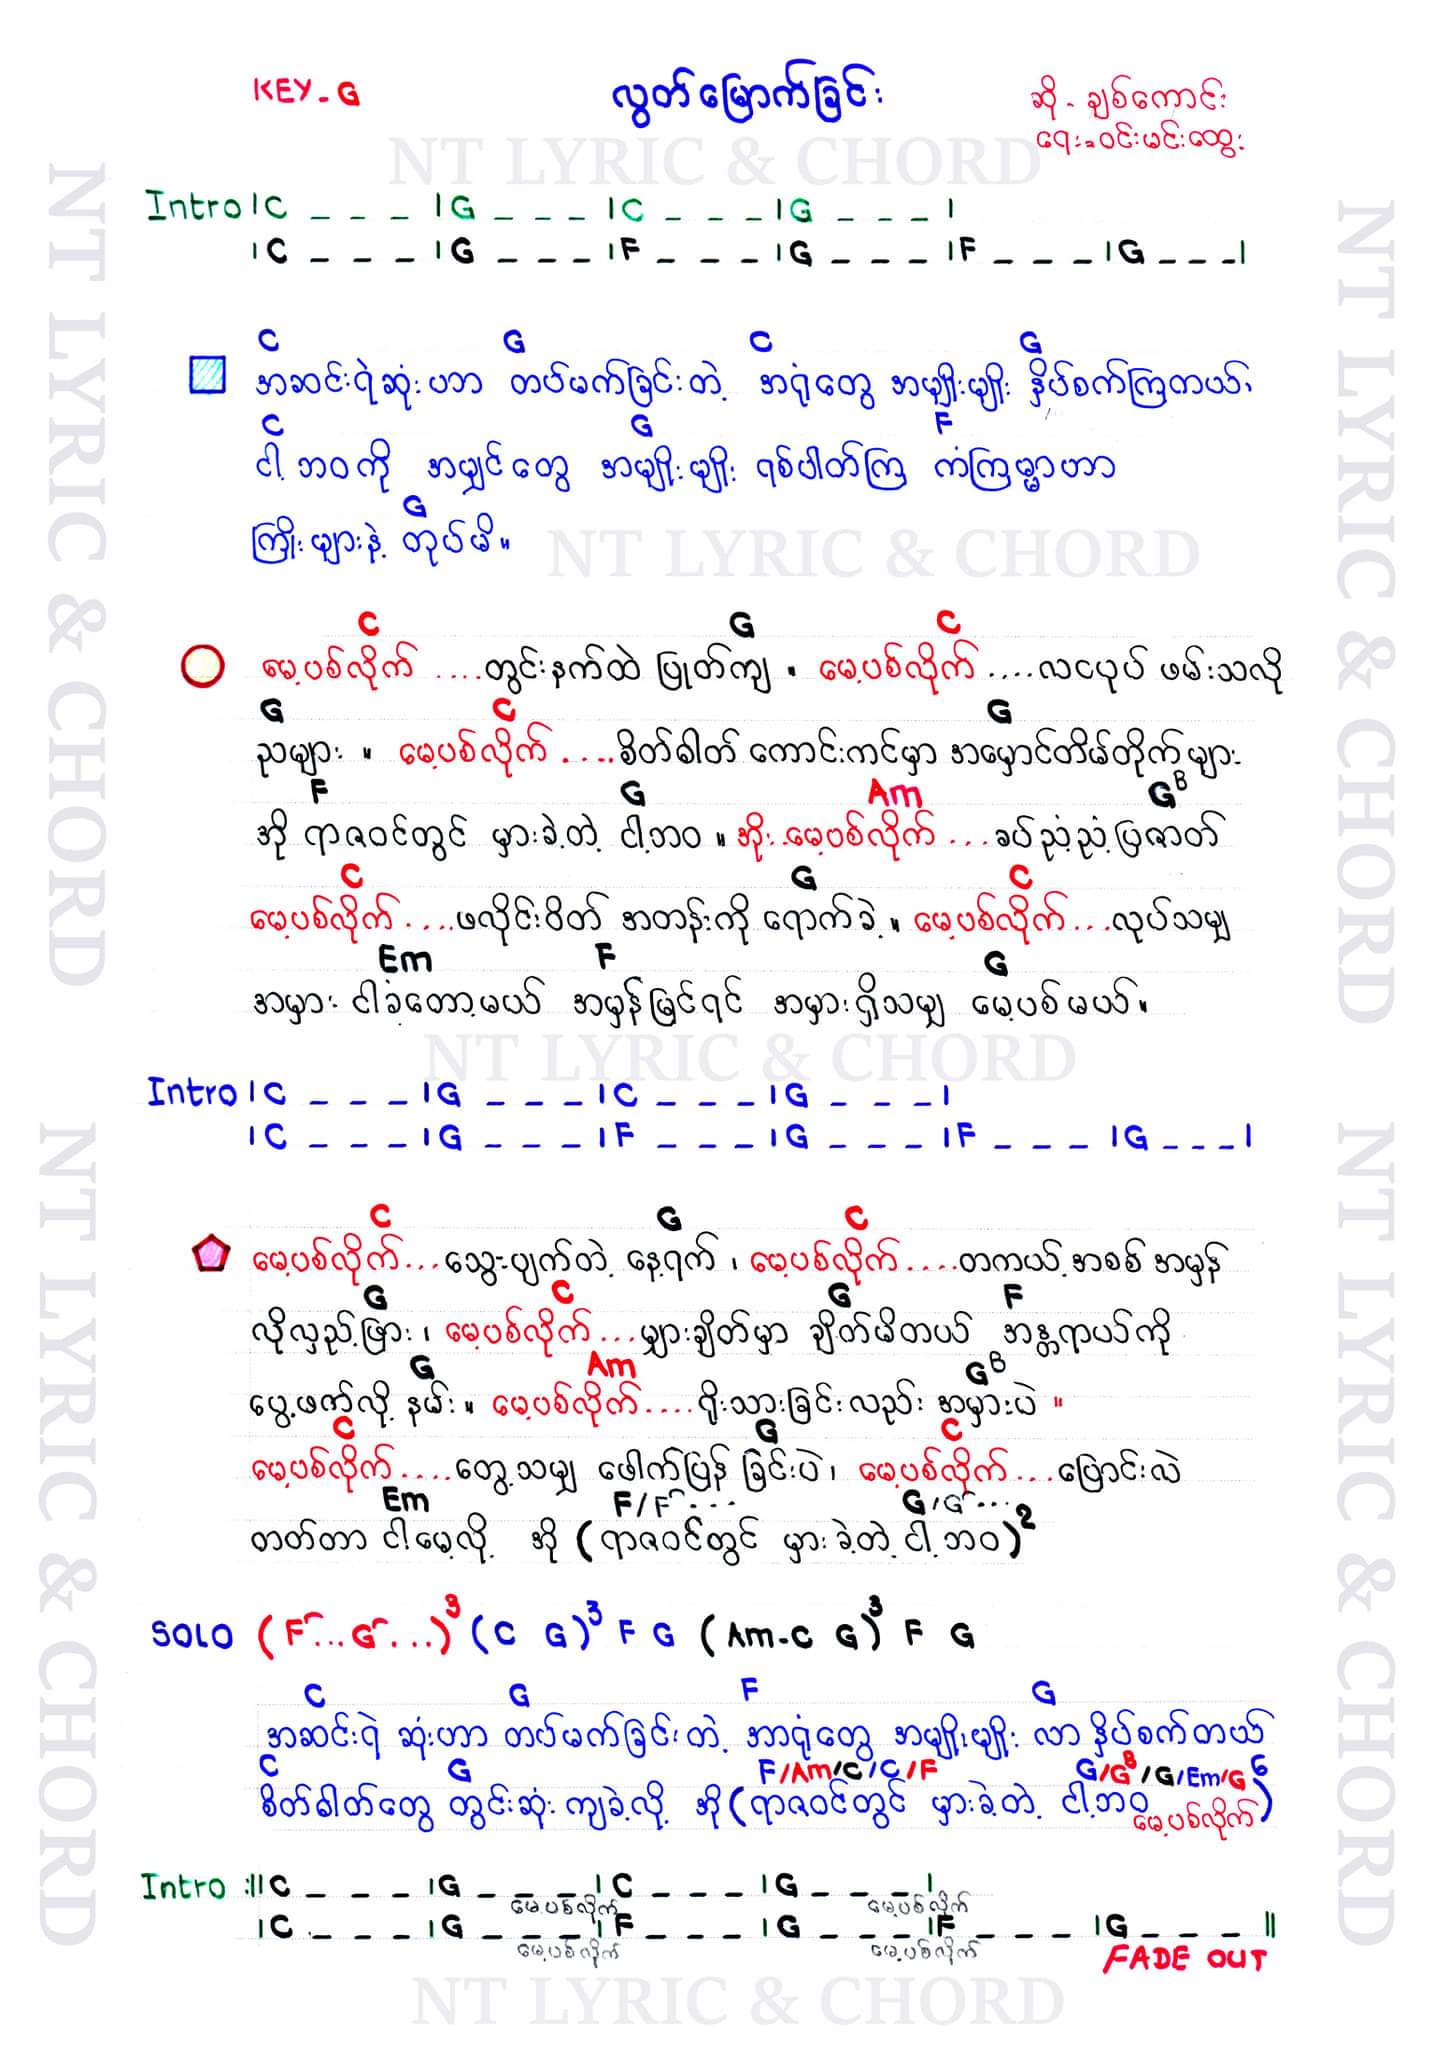 KEY - G
လွတ်မြောက်ခြင်း
ဆို - ချစ်ကောင်း
ရေး - ဝင်းမင်းထွေး
NT LYRIC & CHORD
Intro |C _ _ _ |G _ _ _ |C _ _ _ |G _ _ _ |
|C _ _ _ |G _ _ _ |F _ _ _ |G _ _ _ |F _ _ _ |G _ _ _|
C G C G
အဆင်းရဲဆုံးဟာ တပ်မက်ခြင်းတဲ့ အာရုံတွေ အမျိုးမျိုး နှိပ်စက်ကြတယ်၊
C G F
ငါ့ဘဝကို အမျှင်တွေ အမျိုးမျိုး ရစ်ပါတ်ကြ ကံကြမ္မာဟာ
G
ကြိုးများနဲ့ တုပ်မိ။
NT LYRIC & CHORD
C G C
မေ့ပစ်လိုက် ....တွင်းနက်ထဲ ပြုတ်ကျ ။ မေ့ပစ်လိုက် ....လငပုပ် ဖမ်းသလို
G C G
ညများ ။ မေ့ပစ်လိုက် ....စိတ်ဓါတ် ကောင်းကင်မှာ အမှောင်တိမ်တိုက်များ
F G Am G6
အို ရာဇဝင်တွင် မှားခဲ့တဲ့ ငါ့ဘဝ ။ အိုး မေ့ပစ်လိုက် ...ခပ်ညံ့ညံ့ပြဇာတ်
C G C
မေ့ပစ်လိုက် ....ဖလိုင်းဝိတ် အတန်းကို ရောက်ခဲ့ ။ မေ့ပစ်လိုက် ...လုပ်သမျှ
Em F G
အမှား ငါခံတော့မယ် အမှန်မြင်ရင် အမှားရှိသမျှ မေ့ပစ်မယ်။
NT LYRIC & CHORD
Intro |C _ _ _ |G _ _ _ |C _ _ _ |G _ _ _ |
|C _ _ _ |G _ _ _ |F _ _ _ |G _ _ _ |F _ _ _ |G _ _ _ |
C G C
မေ့ပစ်လိုက်...သွေးပျက်တဲ့ နေ့ရက် ၊ မေ့ပစ်လိုက် ....တကယ့်အစစ် အမှန်
G C G F
လိုလှည့်ဖြား ၊ မေ့ပစ်လိုက် ...မျှားချိတ်မှာ ချိတ်မိတယ် အန္တရာယ်ကို
G Am G6
ပွေ့ဖက်လို့ နမ်း။ မေ့ပစ်လိုက် ....ရိုးသားခြင်းလည်း အမှားပဲ ။
C G C
မေ့ပစ်လိုက် ....တွေ့သမျှ ဖေါက်ပြန် ခြင်းပဲ၊ မေ့ပစ်လိုက် ...ပြောင်းလဲ
Em F/F... G/G...
တတ်တာ ငါမေ့လို့ အို (ရာဇဝင်တွင် မှားခဲ့တဲ့ ငါ့ဘဝ)2
SOLO (F...G...)3 (C G)3 F G (Am-C G)3 F G
C G F G
အဆင်းရဲ ဆုံးဟာ တပ်မက်ခြင်းတဲ့ အာရုံတွေ အမျိုးမျိုး လာ နှိပ်စက်တယ်
C G F/Am/C/C/F G/G6/G/Em/G
စိတ်ဓါတ်တွေ တွင်းဆုံး ကျခဲ့လို့ အို (ရာဇဝင်တွင် မှားခဲ့တဲ့ ငါ့ဘဝ မေ့ပစ်လိုက်)6
Intro :||C _ _ _ |G _ _ _ |C _ _ _ |G _ _ _ |
မေ့ပစ်လိုက် မေ့ပစ်လိုက်
|C _ _ _ |G _ _ _ |F _ _ _ |G _ _ _ |F _ _ _ |G _ _ _ ||
မေ့ပစ်လိုက် မေ့ပစ်လိုက်
FADE OUT
NT LYRIC & CHORD
NT LYRIC & CHORD
NT LYRIC & CHORD
NT LYRIC & CHORD
NT LYRIC & CHORD